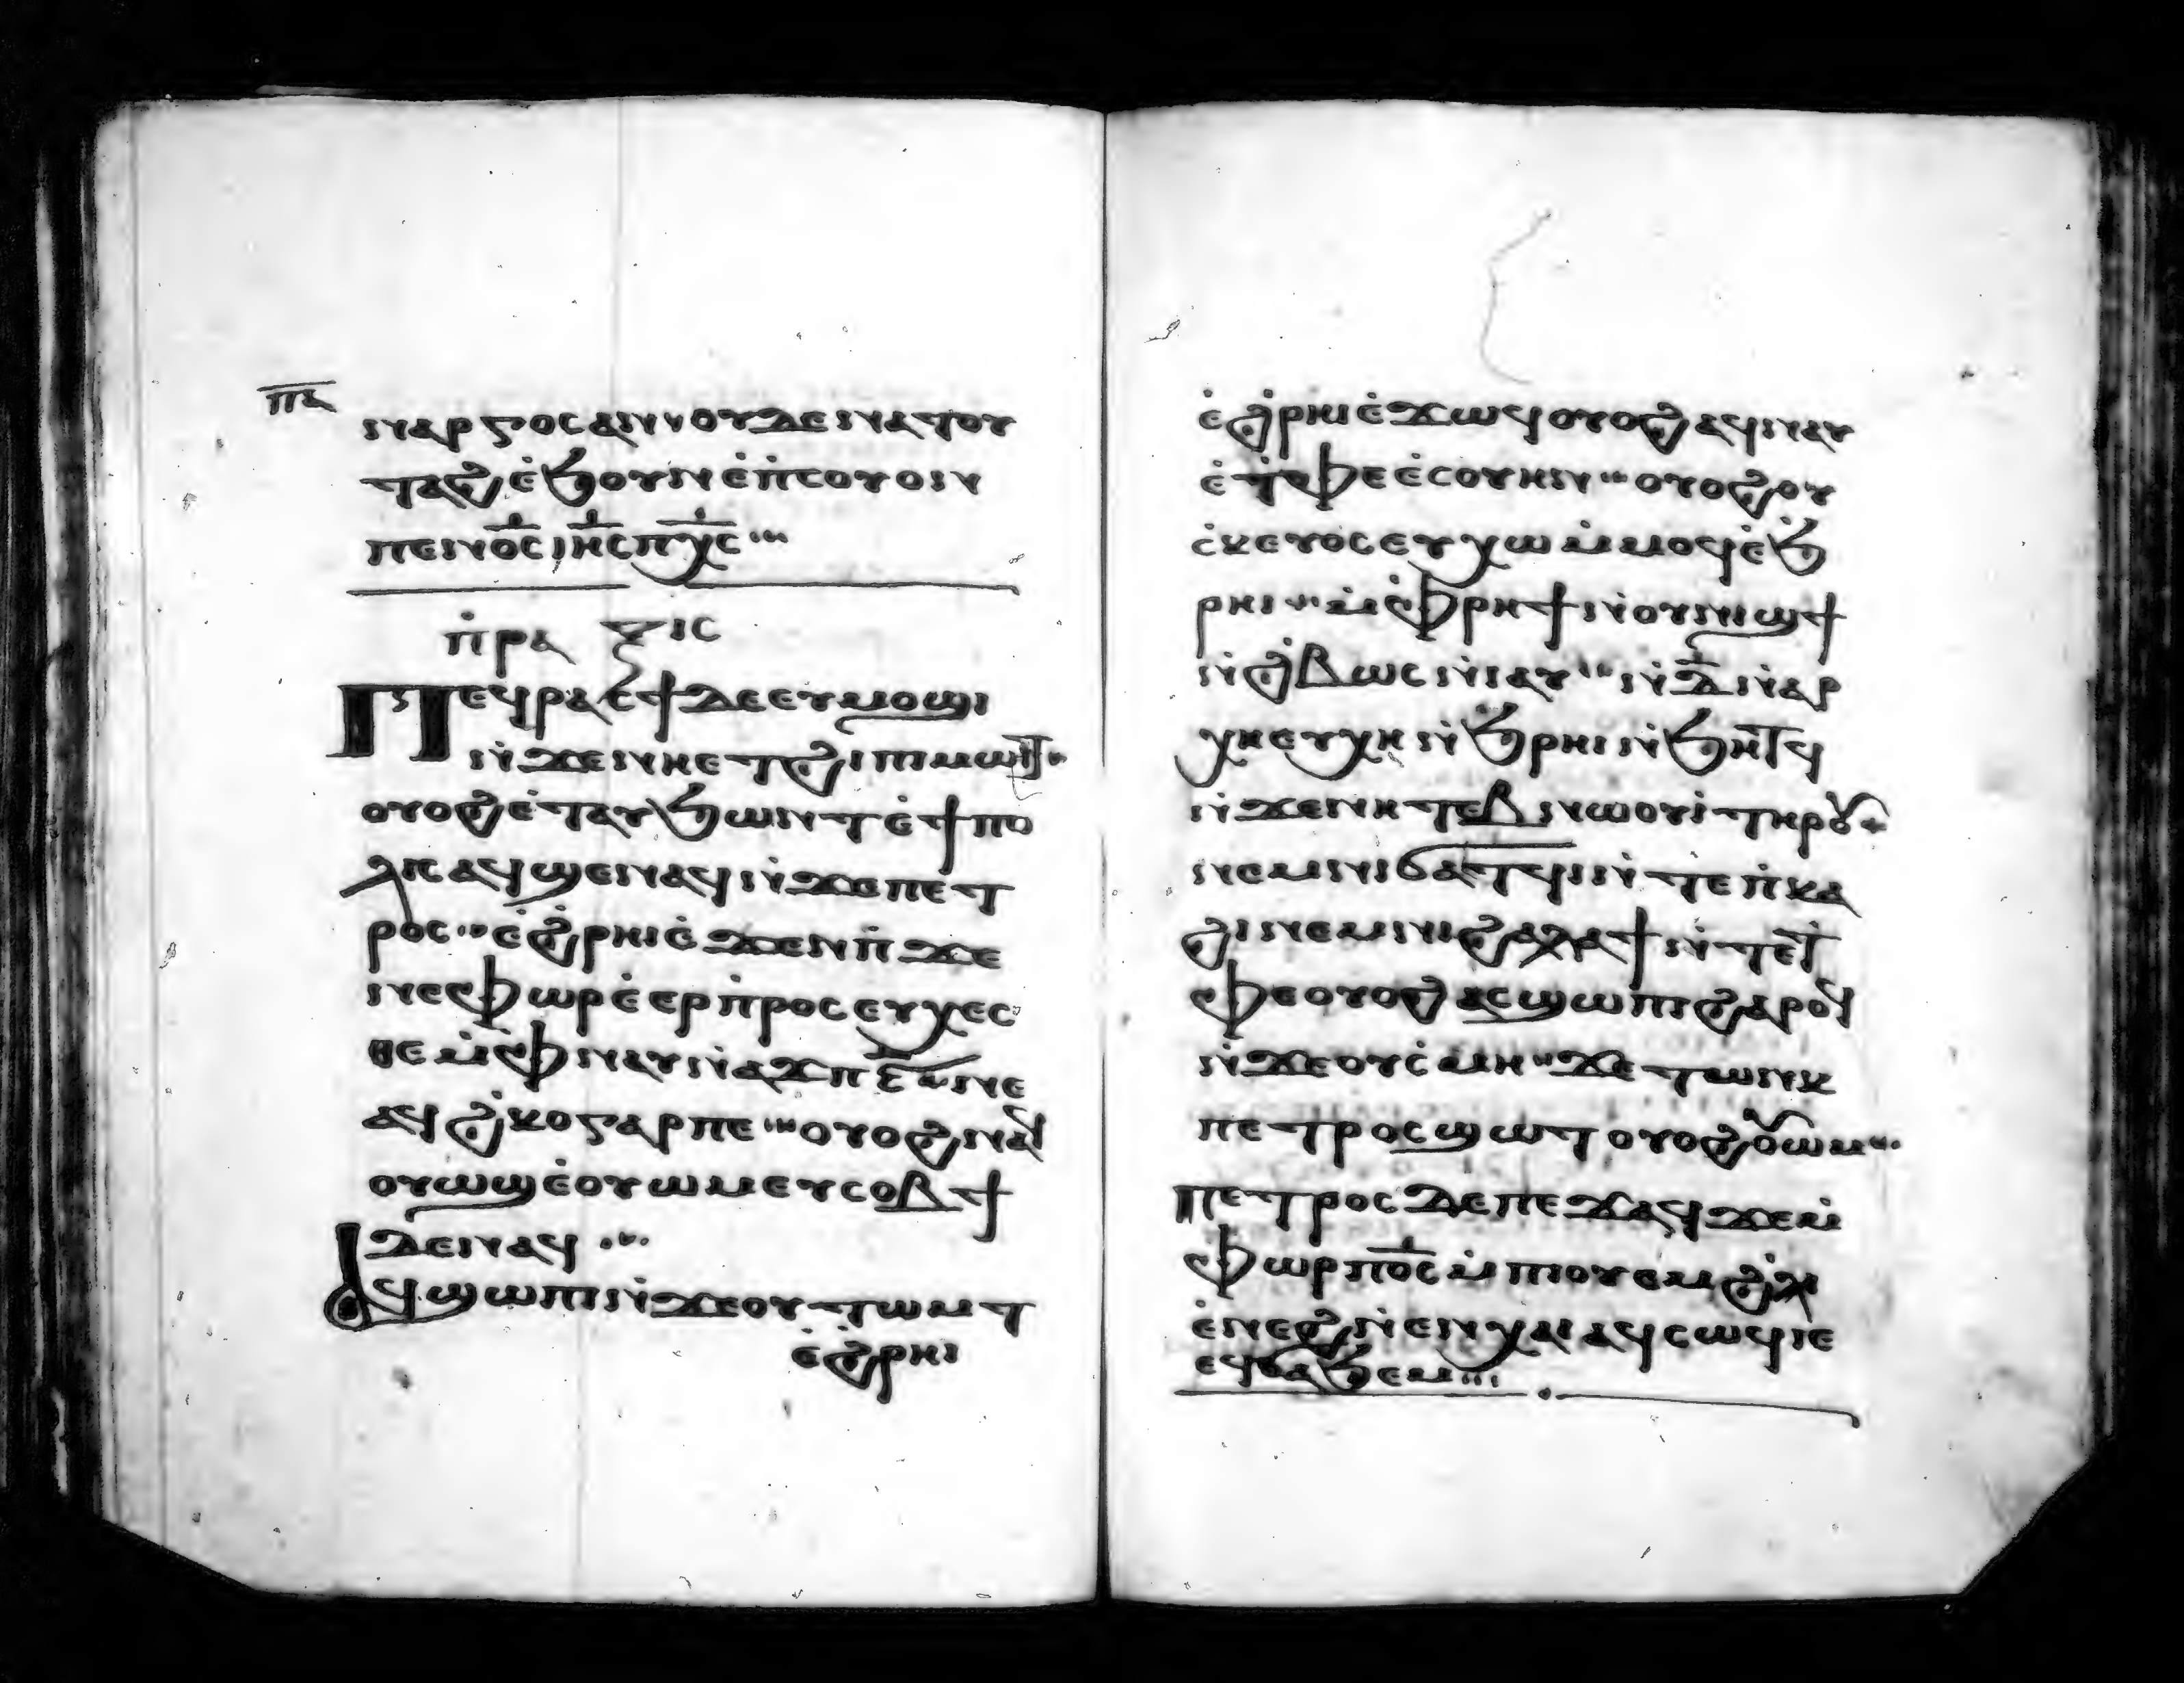 ⲡⲁ̅
ⲛⲁⲣⲅⲟⲥ ⲁⲛ ⲛⲟⲩⲇⲉ ⲛⲁⲧⲟⲩ
ⲧⲁϩ ⲉ̀ϧⲟⲩⲛ ⲉ̀ⲡ̀ⲥⲟⲩⲟⲓⲛ
ⲡⲉⲛⲟ̅ⲥ̅ ⲓⲏ̅ⲥ̅ ⲡⲭ̅ⲥ̅
ⲡ̀ⲣⲁ ⲝⲓⲥ
Ⲡⲉϥⲣⲁⲥ̀ϯ ⲇⲉ ⲉⲩⲙⲟϣⲓ
ⲛ̀ϫⲉⲛⲏ ⲉⲧϩⲓⲡⲓⲙⲱⲓⲧ
ⲟⲩⲟϩ ⲉ̀ⲧⲁⲩϧⲱⲛⲧ ⲉ̀ϯⲡⲟ
ⲗⲓⲥ ⲁϥϣⲉⲛⲁϥ ⲛ̀ϫⲉⲡⲉⲧ
ⲣⲟⲥ ⲉ̀ϩ̀ⲣⲏⲓ ⲉ̀ϫⲉⲛ ⲡ̀ϫⲉ
ⲛⲉⲫⲱⲣ ⲉ̀ⲉⲣⲡ̀ⲣⲟⲥⲉⲩⲭⲉⲥ
ⲑⲉ ⲙ̀ⲫ̀ⲛⲁⲩ ⲛ̀ⲁϫⲡ ⲋ̅ ⲛⲉ
ⲁϥϩ̀ⲕⲟ ⲅⲁⲣ ⲡⲉ ⲟⲩⲟϩ ⲛⲁϥ
ⲟⲩⲱϣ ⲉ̀ⲟⲩⲱⲙ ⲉⲩⲥⲟⲃϯ
ⲇⲉ ⲛⲁϥ
Ⲁϥϣⲱⲡⲓ ⲛ̀ϫⲉⲟⲩⲧⲱⲙⲧ
ⲉ̀ϩ̀ⲣⲏⲓ
ⲉ̀ϩ̀ⲣⲏⲓ ⲉ̀ϫⲱϥ ⲟⲩⲟϩ ⲁϥⲛⲁⲩ
ⲉ̀ⲧ̀ⲫⲉ ⲉ̀ⲥⲟⲩⲏⲛ ⲟⲩⲟϩ ⲟⲩ
ⲥ̀ⲕⲉⲩⲟⲥ ⲉⲩⲭⲱ ⲙ̀ⲙⲟϥ ⲉ̀ϧ̀
ⲣⲏⲓ ⲙ̀ⲫ̀ⲣⲏϯ ⲛ̀ⲟⲩⲛⲓϣϯ
ⲛ̀ϩ̀ⲃⲱⲥ ⲛ̀ⲓⲁⲩ ⲛ̀ⲇ̅ ⲛ̀ⲁⲣ
ⲭⲏ ⲉⲩⲭⲏ ⲛ̀ϧ̀ⲣⲏⲓ ⲛ̀ϧⲏⲧϥ
ⲛ̀ϫⲉⲛⲏ ⲧⲉⲃⲛⲱⲟⲩⲓ̀ ⲧⲏⲣⲟⲩ
ⲛⲉⲙ ⲛⲓϭⲁⲧϥⲓ ⲛ̀ⲧⲉ ⲡ̀ⲕⲁ
ϩⲓ ⲛⲉⲙ ⲛⲓϩⲁⲗⲁϯ ⲛ̀ⲧⲉ ⲧ
ⲫⲉ ⲟⲩⲟϩ ⲁⲥϣⲱⲡⲓ ϩⲁⲣⲟϥ
ⲛ̀ϫⲉⲟⲩⲥ̀ⲙⲏ ϫⲉ ⲧⲱⲛⲕ
ⲡⲉⲧⲣⲟⲥ ϣⲱⲧ ⲟⲩⲟϩ ⲟⲩⲱⲙ
ⲡⲉⲧⲣⲟⲥ ⲇⲉ ⲡⲉϫⲁϥ ϫⲉ ⲙ̀
ⲫⲱⲣ ⲡⲟ̅ⲥ̅ ⲙ̀ⲡⲓⲟⲩⲉⲙ ϩ̀ⲗⲓ
ⲉ̀ⲛⲉϩ ⲛ̀ⲉⲛⲭⲁⲓ ⲁϥⲥⲱϥ ⲓⲉ
ⲉϥϭⲁϧⲉⲙ